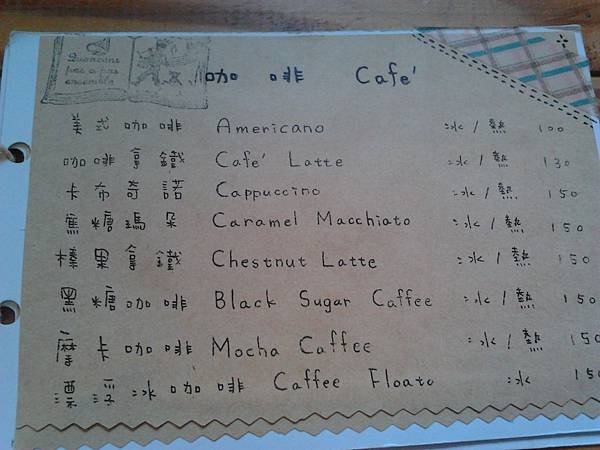 Quancans
fins a pas
ensembla
咖啡 Cafe'
美式咖啡 Americano 冰/熱 100
咖啡拿鐵 Cafe' Latte 冰/熱 130
卡布奇諾 Cappuccino 冰/熱 150
焦糖瑪朵 Caramel Macchiato 冰/熱 150
榛果拿鐵 Chestnut Latte 冰/熱 150
黑糖咖啡 Black Sugar Caffee 冰/熱 150
摩卡咖啡 Mocha Caffee 冰/熱 150
漂浮冰咖啡 Caffee Floato 冰 150